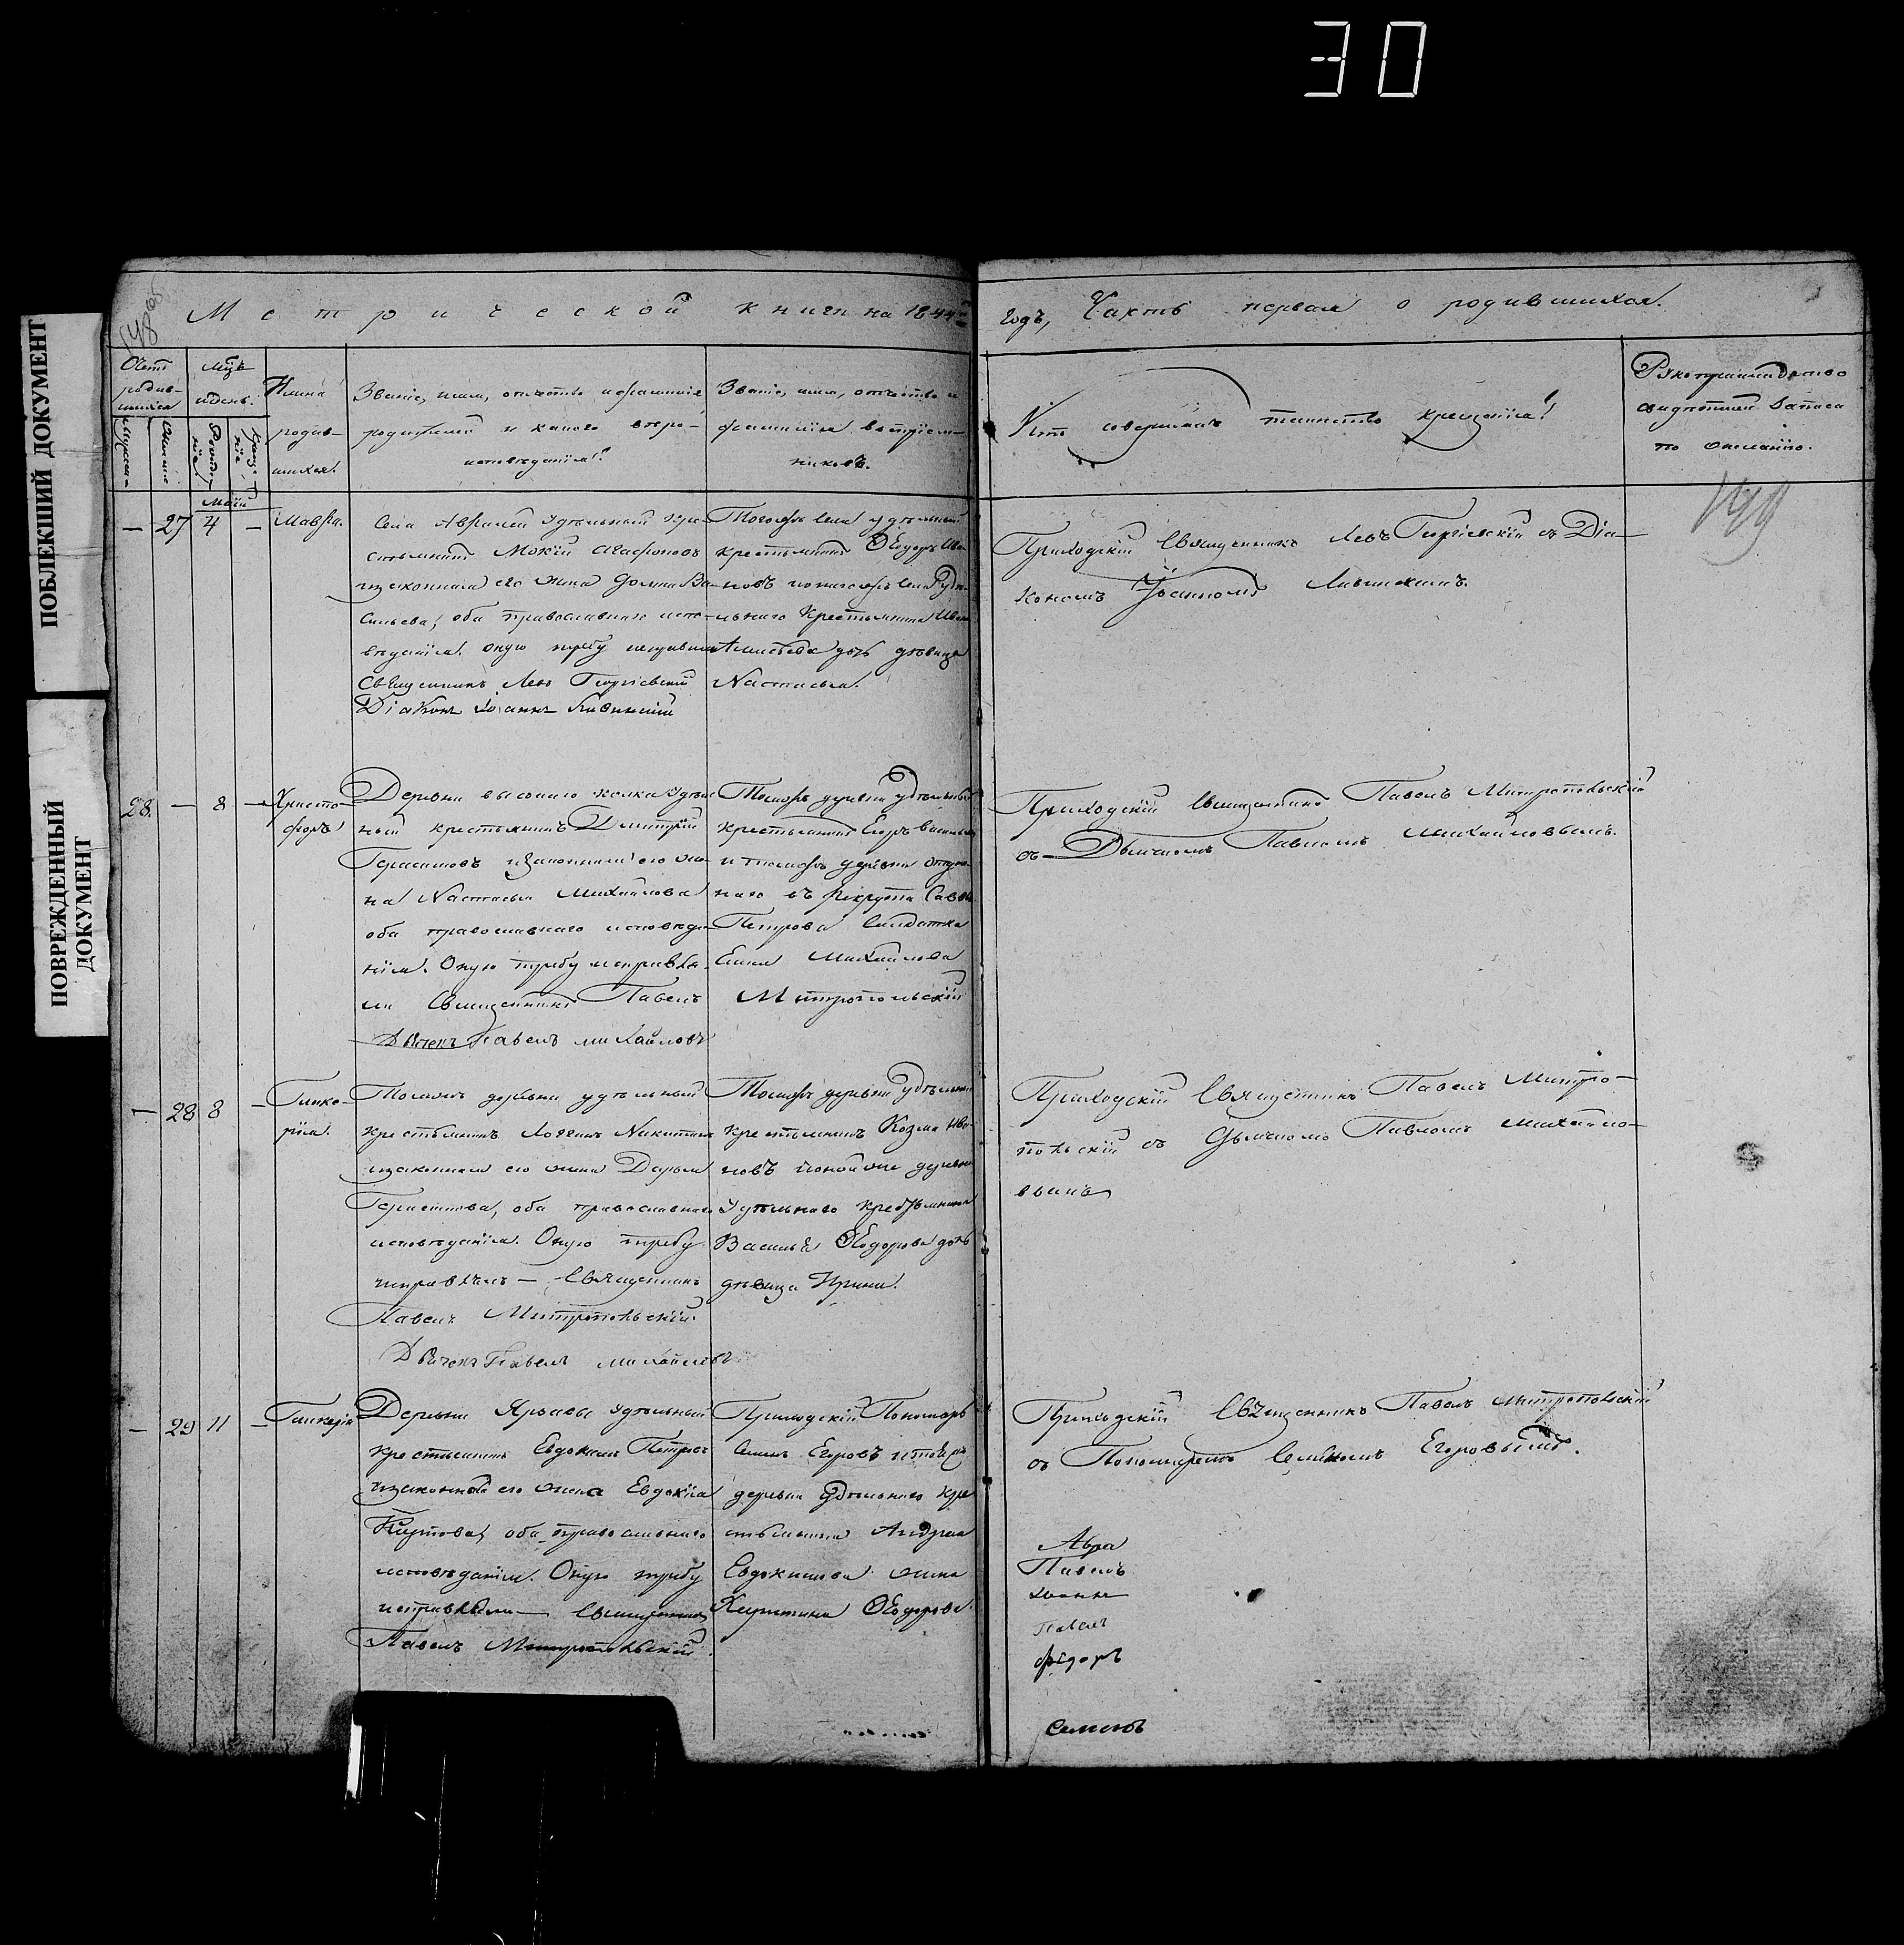 30
ПОБЛЕКШИЙ ДОКУМЕНТ
ПОВРЕЖДЕННЫЙ
ДОКУМЕНТ
Метрической книги на 1844й
годъ, Часть первая о родившихся.
Счетъ
родив-
шихся
Мѣц
и день.
Имена
родив-
шихся.
Званіе, имя, отчество и фамилія
родителей и какого вѣро-
исповѣданія.
Званіе, имя, отчество и
фамилія воспріем-
никовъ.
Кто совершалъ таинство крещенія
Рукоприкладство
свидѣтелей записи
по желанію.
199
Маій
— 27 4 — Мавра.
Села удѣльный кре-
стьянинъ Мокій Агафоновъ
и законная его жена Домна Ва-
сильева, оба православнаго испо-
вѣданія. Оную требу исправили
Священникъ Левъ Георгіевскій
Діаконъ Іоаннъ
Тогожъ села удѣльный
крестьянинъ Ѳеодоръ Ива-
новъ и тогожъ села Удѣ-
льнаго Крестьянина Ивана
дочь дѣвица
Настасья.
Приходскій Священникъ Левъ Георгіевскій съ Діа-
кономъ Іоанномъ
28. — 8 — Христо-
форъ
Деревни высокаго колка Удѣль-
ный крестьянинъ Дмитрій
Герасимовъ и законная его же-
на Настасья Михайлова
оба православнаго исповѣда-
нія. Оную требу исправля-
ли Священникъ Павелъ Митропольскій
Дьячекъ Павелъ Михайловъ
Тоежъ деревни удѣльный
крестьянинъ Егоръ Васильевъ
и тоежъ деревни отдан-
наго въ рекруты Саввы
Петрова Солдатка
Михайлова
Приходскій Священникъ Павелъ Митропольскій
съ Дьячкомъ Павломъ Михайловымъ.
— 28 8 — Глике-
рія.
Тоежъ деревни удѣльный
крестьянинъ Логгинъ Никитинъ
и законная его жена Дарья
Герасимова, оба православнаго
исповѣданія. Оную требу
исправляли — Священникъ
Павелъ Митропольскій.
Дьячекъ Павелъ Михайловъ
Тоежъ деревни Удѣльный
крестьянинъ Козма Ива-
новъ и той же деревни
Удѣльнаго крестьянина
Василья Ѳеодорова дочь
дѣвица Ирина.
Приходскій Священникъ Павелъ Митро-
польскій съ Дьячкомъ Павломъ Михайло-
вымъ
— 29 11 — Гликерія
Деревни удѣльный
крестьянинъ Евдокимъ Петровъ
и законная его жена Евдокія
Карпова, оба православнаго
исповѣданія. Оную требу
исправляли — Священникъ
Павелъ Митропольскій.
Приходскій Пономарь
Семенъ Егоровъ и тоежъ
деревни Удѣльнаго кре-
стьянина Андрея
Евдокимова жена
Ѳеодорова.
Приходскій Священникъ Павелъ Митропольскій
съ Пономаремъ Семеномъ Егоровымъ.
Павелъ
Іоаннъ
Павелъ
Фёдоръ
Семенъ